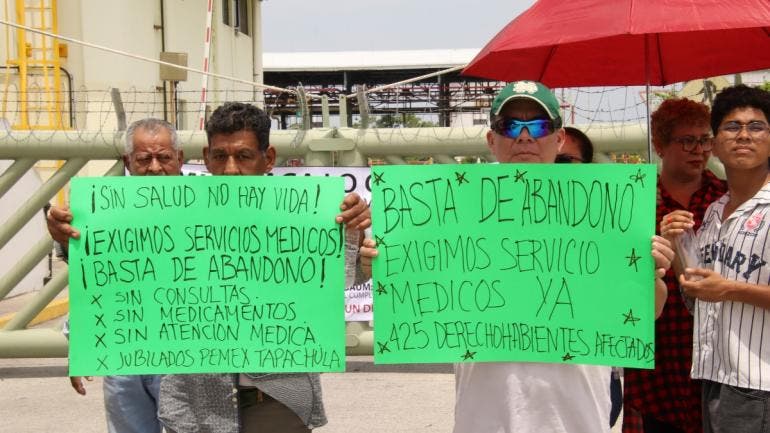 ¡SIN SALUD NO HAY VIDA!
¡EXIGIMOS SERVICIOS MEDICOS!
¡BASTA DE ABANDONO!
X SIN CONSULTAS.
X SIN MEDICAMENTOS
X SIN ATENCIÓN MEDICA.
X JUBILADOS PEMEX TAPACHULA
BASTA DE ABANDONO
EXIGIMOS SERVICIO
MEDICOS YA
425 DERECHOHABIENTES AFECTADOS
UN